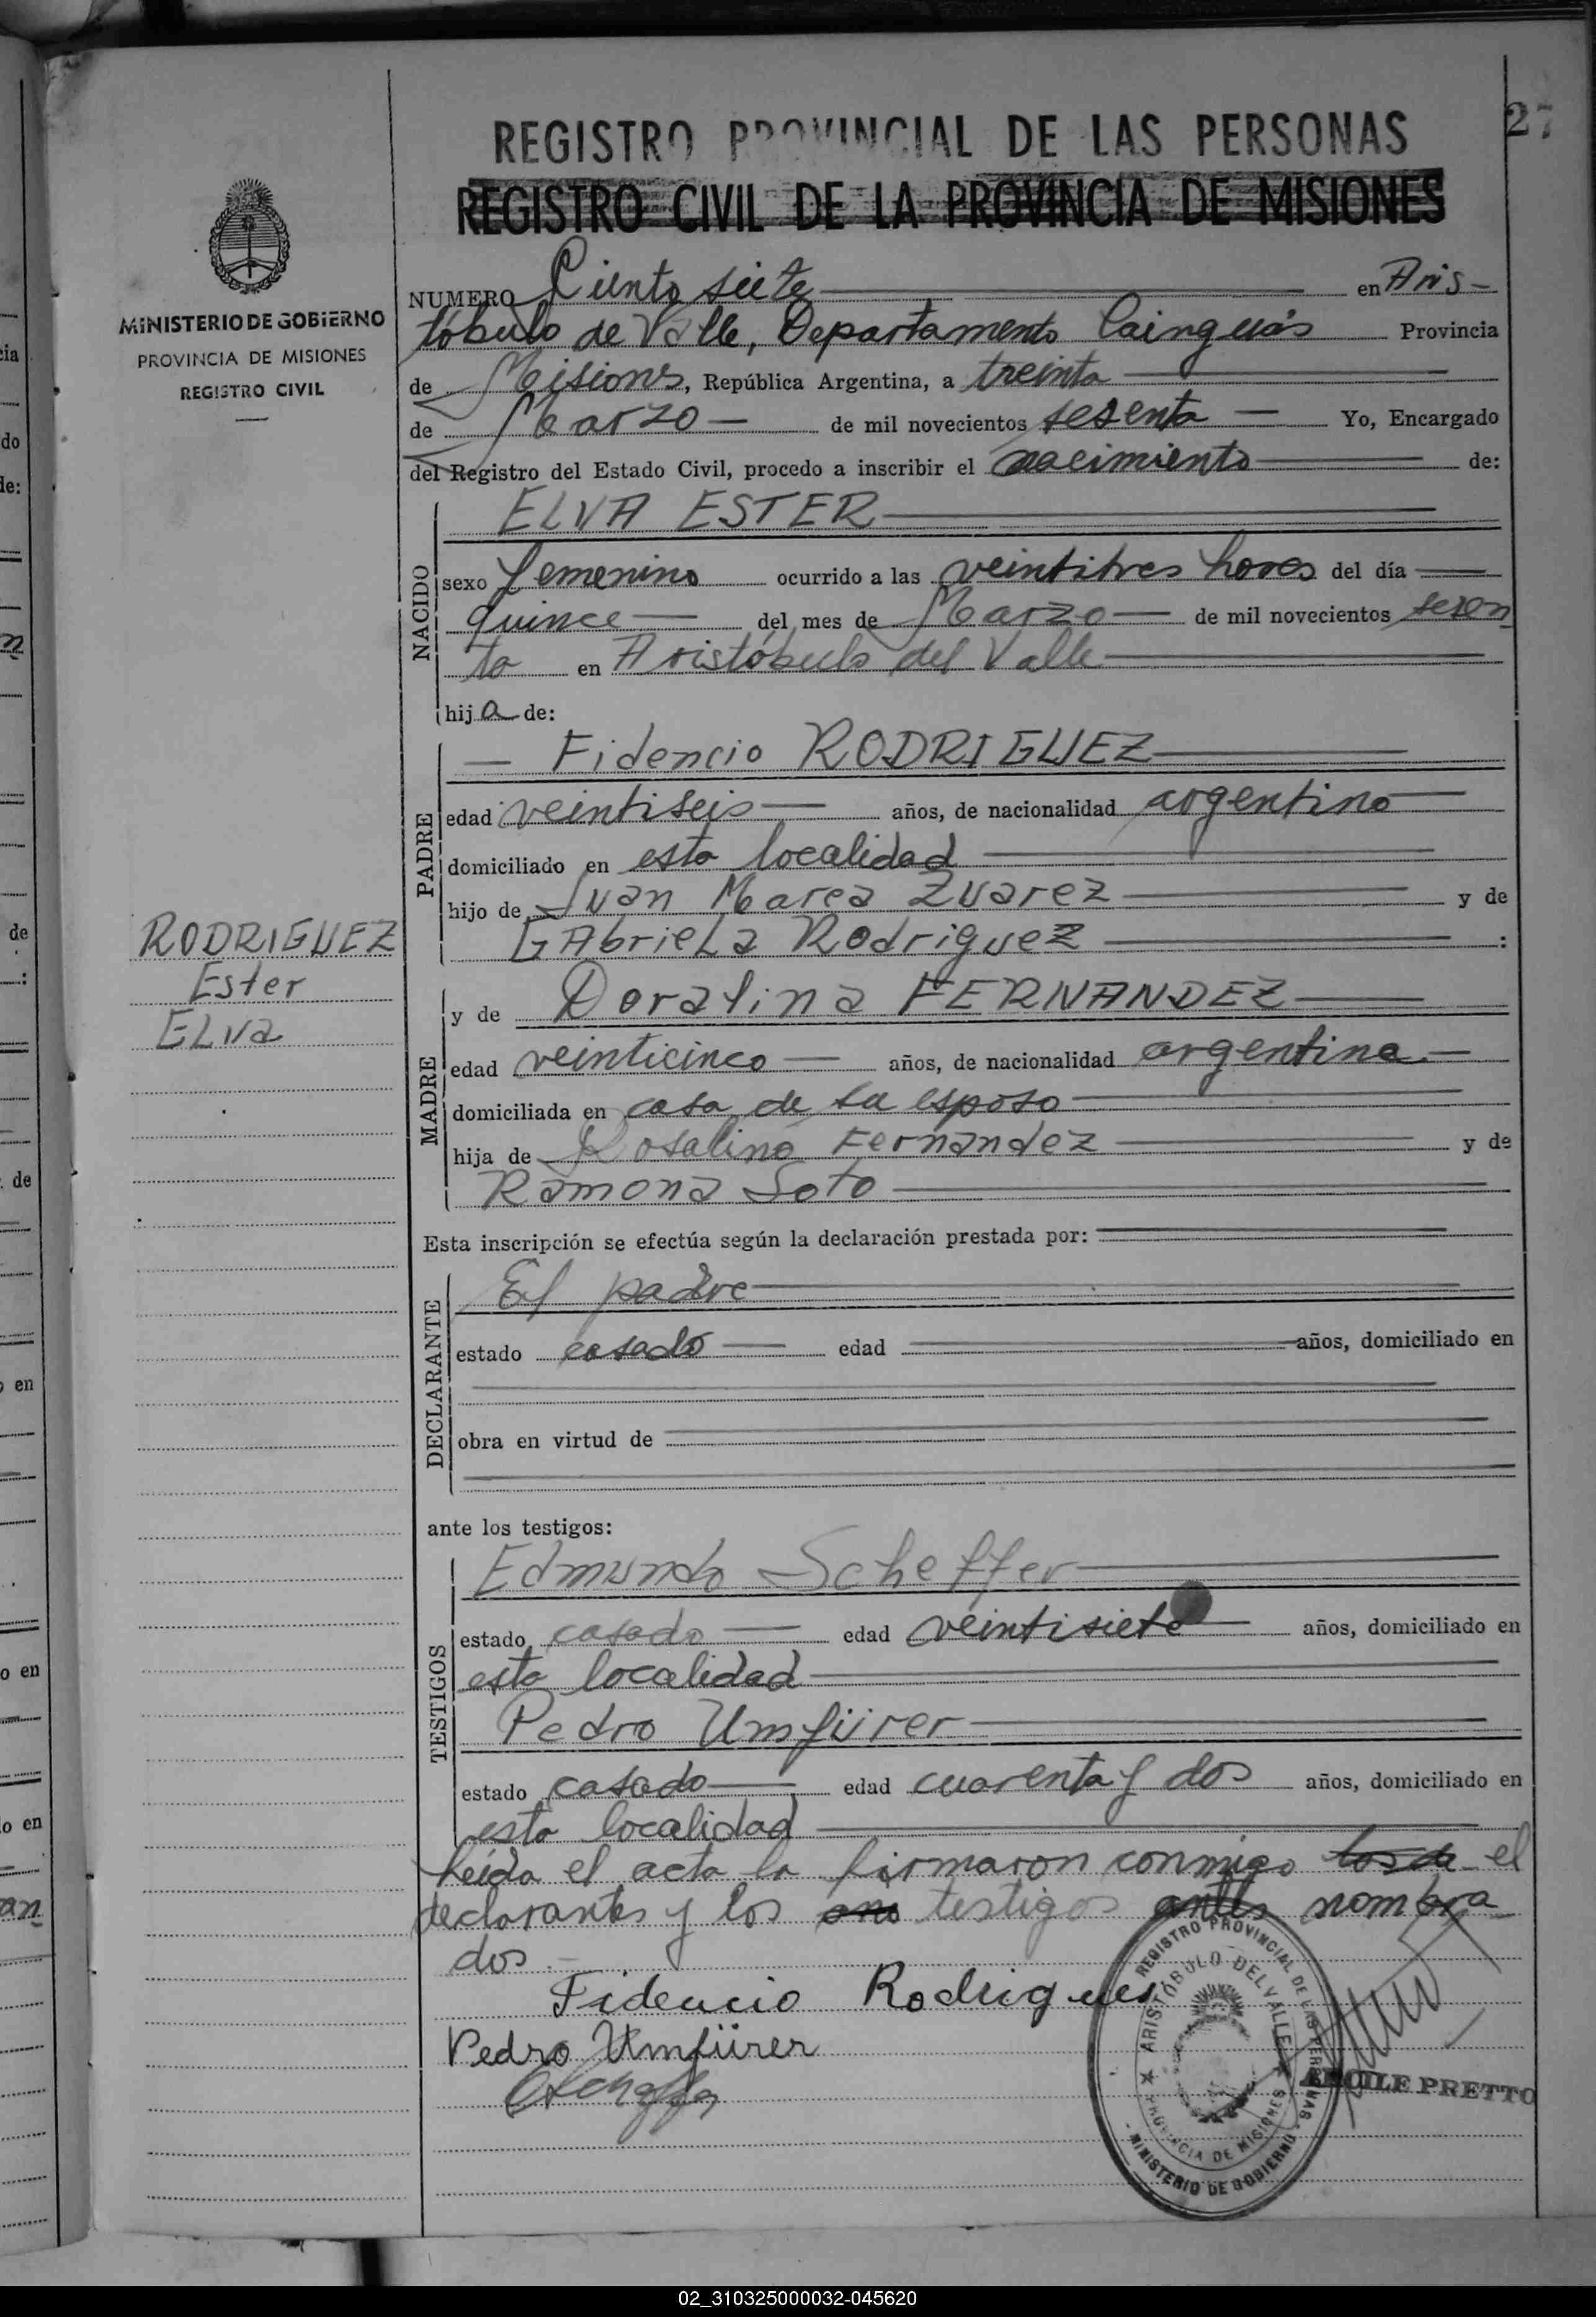 27
REGISTRO PROVINCIAL DE LAS PERSONAS
REGISTRO CIVIL DE LA PROVINCIA DE MISIONES
MINISTERIO DE GOBIERNO
PROVINCIA DE MISIONES
REGISTRO CIVIL
NUMERO Ciento siete en Aris-
tóbulo de Valle, Departamento Cainguás Provincia
de Misiones, República Argentina, a treinta
de Marzo de mil novecientos sesenta Yo, Encargado
del Registro del Estado Civil, procedo a inscribir el nacimiento de:
NACIDO
ELVA ESTER
sexo femenino ocurrido a las veintitres horas del día
quince del mes de Marzo de mil novecientos sesen
ta en Aristóbulo del Valle
hija de:
PADRE
Fidencio RODRIGUEZ
edad veintiseis años, de nacionalidad argentino
domiciliado en esta localidad
hijo de Juan Marca Zuarez y de
GAbrieLa Rodriguez :
RODRIGUEZ
Ester
ELva
MADRE
y de Doralina FERNANDEZ
edad veinticinco años, de nacionalidad argentina
domiciliada en casa de su esposo
hija de Rosalino Fernandez y de
Ramona Soto
Esta inscripción se efectúa según la declaración prestada por:
DECLARANTE
El padre
estado casado edad años, domiciliado en
obra en virtud de
ante los testigos:
TESTIGOS
Edmundo Scheffer
estado casado edad veintisiete años, domiciliado en
esta localidad
Pedro Umfürer
estado casado edad cuarenta y dos años, domiciliado en
esta localidad
Leída el acta la firmaron conmigo el
declarantes y los testigos antes nombra
dos.-
Fidencio Rodrigues
Pedro Umfürer
REGISTRO PROVINCIAL DE LAS PERSONAS
ARISTÓBULO DEL VALLE
PROVINCIA DE MISIONES
MINISTERIO DE GOBIERNO
PRETTO
02_310325000032-045620